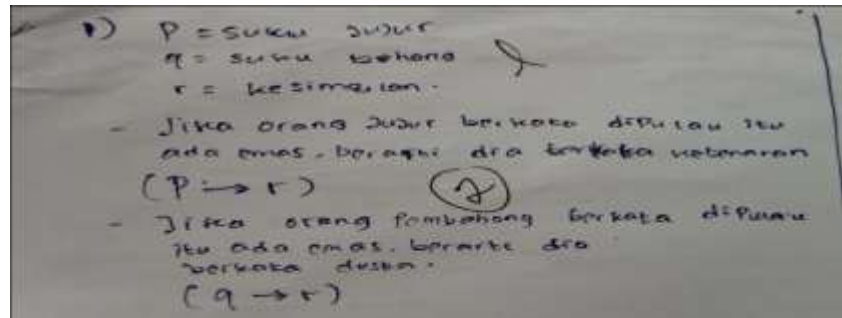 1) P = Suku Jujur
q = suku bohong
r = kesimpulan.
- Jika orang Jujur berkata dipulau itu
ada emas. berarti dia berkata kebenaran
(P → r) 2
- Jika orang Pembohong berkata dipulau
itu ada emas. berarti dia
berkata dusta.
(q → r)